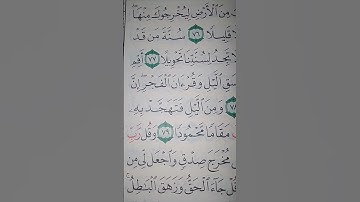 مِنَ ٱلْأَرْضِ لِيُخْرِجُوكَ مِنْهَا ۖ
قَلِيلًا ٧٦ سُنَّةَ مَن قَدْ
تَجِدُ لِسُنَّتِنَا تَحْوِيلًا ٧٧ أَقِمِ
ٱلَّيْلِ وَقُرْءَانَ ٱلْفَجْرِ ۖ إِنَّ
٧٨ وَمِنَ ٱلَّيْلِ فَتَهَجَّدْ بِهِۦ
مَقَامًا مَّحْمُودًا ٧٩ وَقُل رَّبِّ
مُخْرَجَ صِدْقٍ وَٱجْعَل لِّى مِن
جَآءَ ٱلْحَقُّ وَزَهَقَ ٱلْبَٰطِلُ ۚ